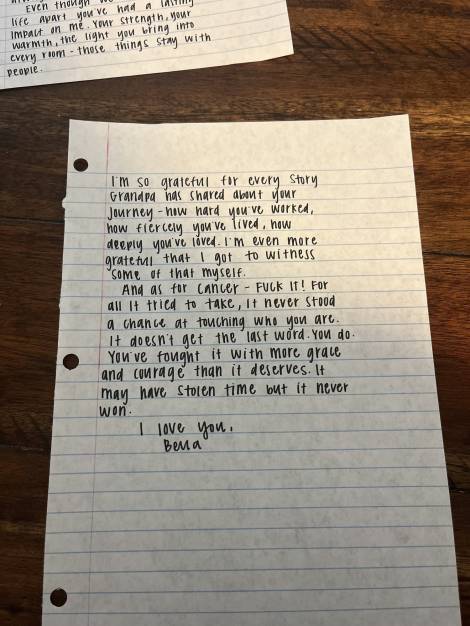 Even though we
life apart you've had a lasting
impact on me. Your strength, your
warmth, the light you bring into
every room - those things stay with
people.
I'm so grateful for every story
Grandpa has shared about your
journey - how hard you've worked,
how fiercely you've lived, how
deeply you've loved. I'm even more
grateful that I got to witness
some of that myself.
And as for cancer - FUCK IT! For
all it tried to take, it never stood
a chance at touching who you are.
It doesn't get the last word. You do.
You've fought it with more grace
and courage than it deserves. It
may have stolen time but it never
won.
I love you,
Bella